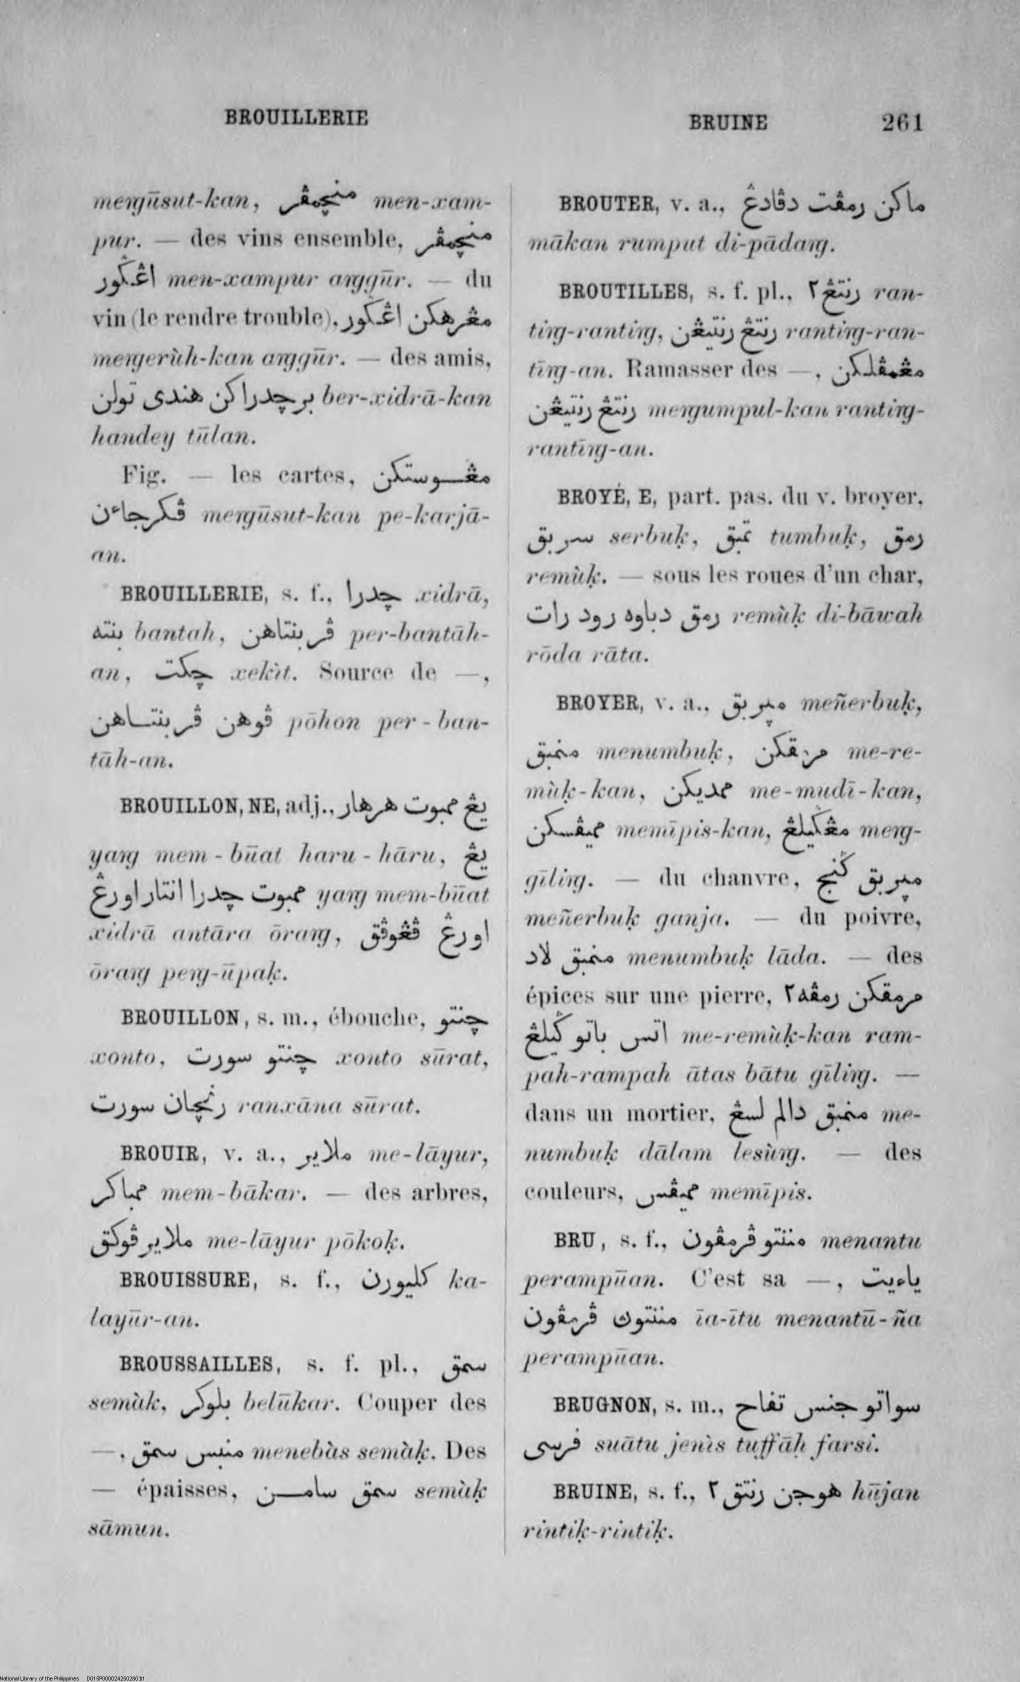 BROUILLERIE
BRUINE 261
meṛgūsut-kan, منچمڤر men-xam-
pur. — des vins ensemble, منچمڤر
اڠݢور men-xampur aṛggūr. — du
vin (le rendre trouble), مڠرهكن اڠݢور
meṛgerùh-kan aṛggūr. — des amis,
برچدراكن هندى تولن ber-xidrā-kan
handey tūlan.
Fig. — les cartes, مڠوستكن
ڤكرجاءن meṛgūsut-kan pe-karjā-
an.
BROUILLERIE, s. f., چدرا xidrā,
بنته bantah, ڤربنتاهن per-bantāh-
an, چكت xekìt. Source de —,
ڤوهن ڤربنتاهن pōhon per-ban-
tāh-an.
BROUILLON, NE, adj., يڠ ممبوت هرهار
yaṛg mem-būat haru-hāru, يڠ
ممبوت چدرا انتار اورڠ yaṛg mem-būat
xidrā antāra ōraṛg, اورڠ ڤڠوڤق
ōraṛg peṛg-ūpaḳ.
BROUILLON, s. m., ébouche, چنتو
xonto, چنتو سورت xonto sūrat,
رنچان سورت ranxāna sūrat.
BROUIR, v. a., ملاير me-lāyur,
ممباكر mem-bākar. — des arbres,
ملاير ڤوكق me-lāyur pōkoḳ.
BROUISSURE, s. f., كليورن ka-
layūr-an.
BROUSSAILLES, s. f. pl., سمق
semàk, بلوكر belūkar. Couper des
—, منبس سمق menebàs semàk. Des
— épaisses, سمق سامن semàk
sāmun.
BROUTER, v. a., ماكن رمڤت دڤادڠ
mākan rumput di-pādaṛg.
BROUTILLES, s. f. pl., رنتڠ٢ ran-
tiṛg-rantiṛg, رنتڠ رنتيڠن rantiṛg-ran-
tīṛg-an. Ramasser des —, مڠمڤلكن
رنتڠ رنتيڠن meṛgumpul-kan rantiṛg-
rantīṛg-an.
BROYÉ, E, part. pas. du v. broyer,
سربق serbuḳ, تمبق tumbuḳ, رمق
remùḳ. — sous les roues d'un char,
رمق دباوه رود رات remùḳ di-bāwah
rōda rāta.
BROYER, v. a., مڽربق meñerbuḳ,
منمبق menumbuḳ, مرمقكن me-re-
mùḳ-kan, ممديكن me-mudī-kan,
مميڤسكن memīpis-kan, مڠݢيلڠ meṛg-
gīliṛg. — du chanvre, مڽربق ݢنج
meñerbuḳ ganja. — du poivre,
منمبق لاد menumbuḳ lāda. — des
épices sur une pierre, مرمقكن رمڤه٢
اتس باتو ݢيلڠ me-remùḳ-kan ram-
pah-rampah ātas bātu gīliṛg. —
dans un mortier, منمبق دالم لسڠ me-
numbuḳ dālam lesùṛg. — des
couleurs, مميڤس memīpis.
BRU, s. f., مننتو ڤرمڤون menantu
perampūan. C'est sa —, ياءيت
مننتوڽ ڤرمڤون īa-ītu menantū-ña
perampūan.
BRUGNON, s. m., سواتو جنس تفاح
فرسى suātu jenìs tuffāḥ farsi.
BRUINE, s. f., هوجن رنتق٢ hūjan
rintiḳ-rintiḳ.
National Library of the Philippines